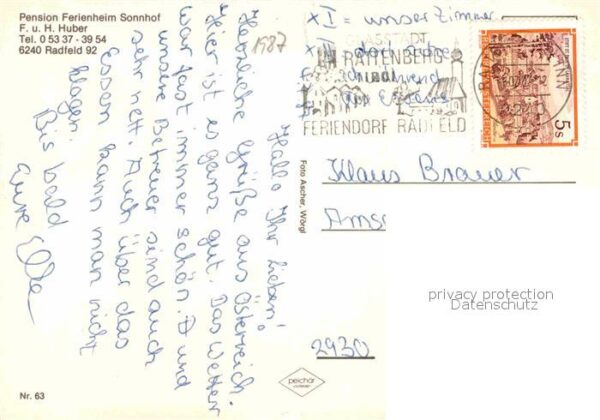 Pension Ferienheim Sonnhof
F. u. H. Huber
Tel. 0 53 37 - 39 54
6240 Radfeld 92
1987
Hallo Ihr Lieben!
Herzliche Grüße aus Österreich.
Hier ist es ganz gut. Das Wetter
war fast immer schön. A und
unsere Betreuer sind auch
sehr nett. Auch über das
Essen kann man nicht
klagen.
Bis bald
Eure Elke
XI = unser Zimmer
GLASSTADT
RATTENBERG
TIROL
FERIENDORF RADFELD
5s
Foto Ascher, Wörgl
Klaus Brauer
Ams
2930
privacy protection
Datenschutz
peichär
Nr. 63